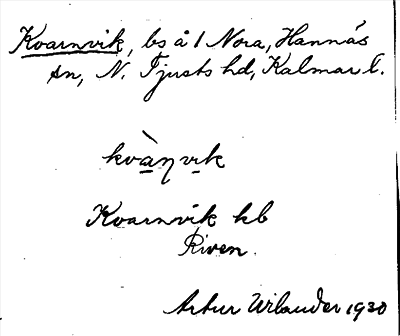 Kvarnvik, bs å 1 Nora, Hannäs
sn, N. Tjusts hd, Kalmar l.
kvàɳvɩk
Kvarnvik kb
Riven.
Artur Wilander 1930